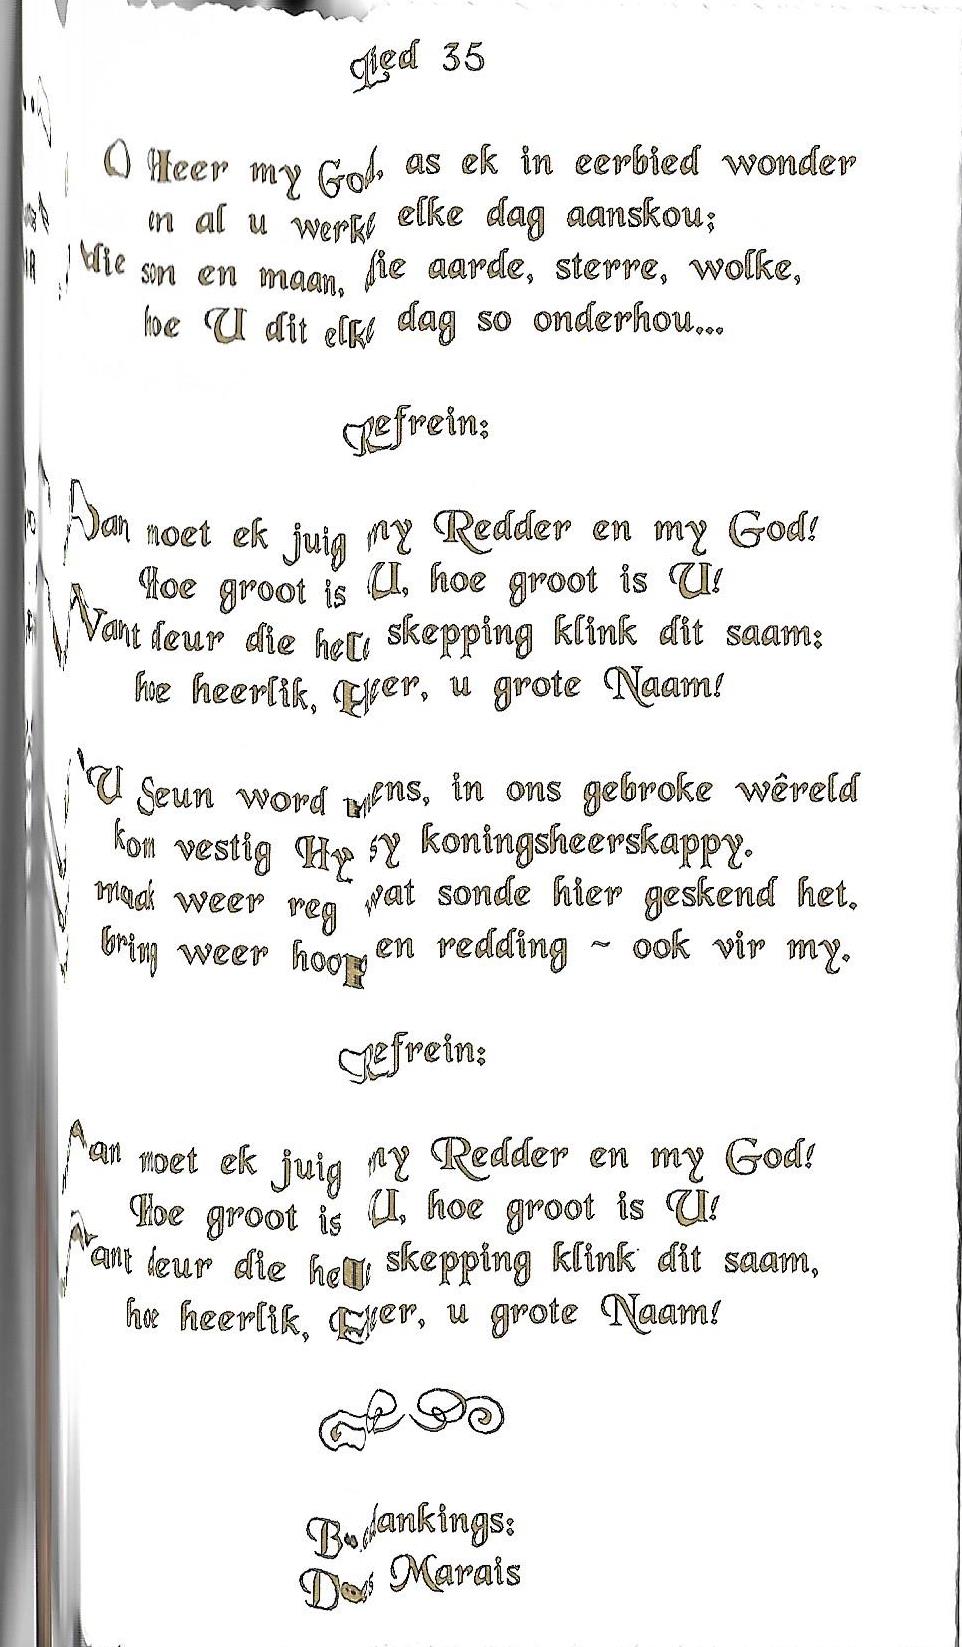 Lied 35
O Heer my God, as ek in eerbied wonder
en al u werke elke dag aanskou;
die son en maan, die aarde, sterre, wolke,
hoe U dit elke dag so onderhou...
Refrein:
Dan moet ek juig my Redder en my God!
Hoe groot is U, hoe groot is U!
Want deur die hele skepping klink dit saam:
hoe heerlik, Heer, u grote Naam!
U Seun word mens, in ons gebroke wêreld
kom vestig Hy sy koningsheerskappy.
maak weer reg wat sonde hier geskend het.
bring weer hoop en redding ~ ook vir my.
Refrein:
Dan moet ek juig my Redder en my God!
Hoe groot is U, hoe groot is U!
Want deur die hele skepping klink dit saam,
hoe heerlik, Heer, u grote Naam!
Bedankings:
Marais